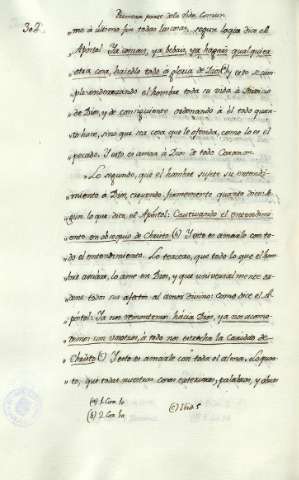 302.
Primera parte de la Vida Comun
„mo à ultimo fin todas las cosas, segun lo que dice el
„Apóstol: Ya comais, ya bebais, ya hagais qualquiera
„otra cosa, hacedlo todo à gloria de Dios (a) y esto se cum-
„ple enderezando el hombre toda su vida à servicio
„de Dios, y de consiguiente ordenando à èl todo quan-
„to hace, sino que sea cosa que le ofenda, como lo es el
„pecado. Y esto es amar à Dios de todo Corazon.
„Lo segundo, que el hombre sujete su entendi-
„miento à Dios, creyendo firmemente quanto dice se-
„gun lo que dice el Apóstol: Cautivando el entendimi-
„ento en obsequio de Christo (b) Y esto es amarlo con to-
„do el entendimiento. Lo tercero, que todo lo que el hom-
„bre amáre, lo ame en Dios, y que universalmente or-
„dene todos sus afectos al amor divino: como dice el A-
„póstol: Ya nos remontemos hàcia Dios, ya nos acomo-
„demos con vosotros, à todo nos estrecha la Caridad de
„Christo (c) Y esto es amarle con toda el alma. Lo quar-
„to, que todas nuestras cosas exteriores, palabras, y obras
(a) 1. Cor. 10
(b) 2. Cor. 10
(c) Ibid. 5